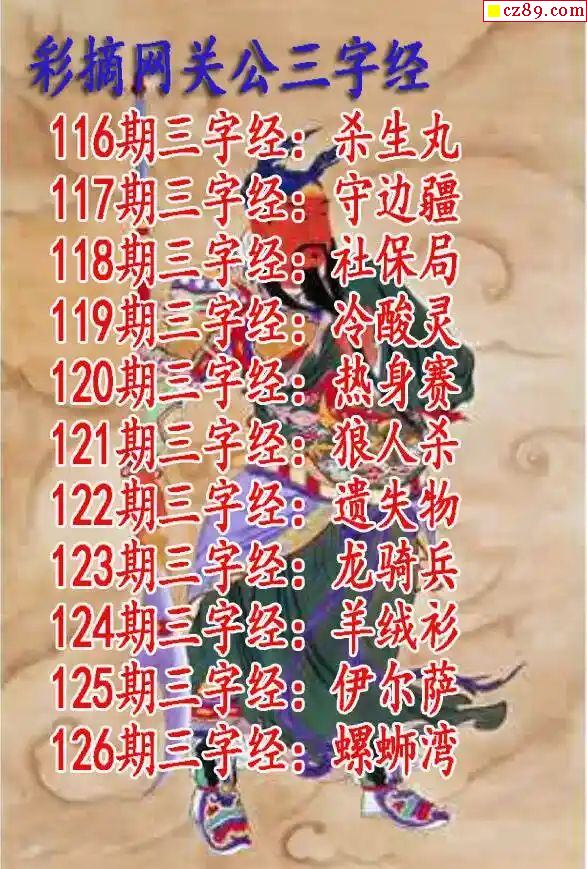 cz89.com
彩摘网关公三字经
116期三字经：杀生丸
117期三字经：守边疆
118期三字经：社保局
119期三字经：冷酸灵
120期三字经：热身赛
121期三字经：狼人杀
122期三字经：遗失物
123期三字经：龙骑兵
124期三字经：羊绒衫
125期三字经：伊尔萨
126期三字经：螺蛳湾